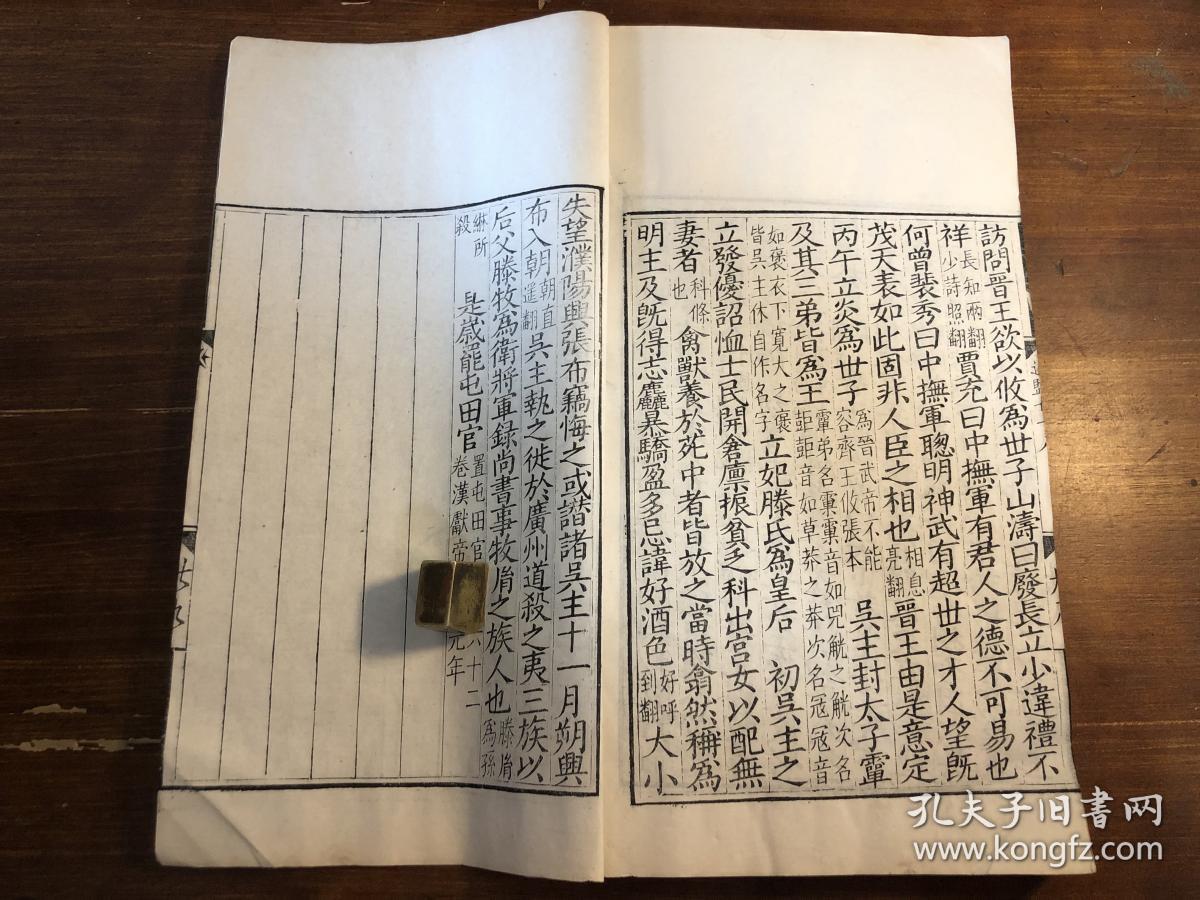 訪問晉王欲以攸爲世子山濤曰廢長立少違禮不
祥長知兩翻少詩照翻賈充曰中撫軍有君人之德不可易也
何曾裴秀曰中撫軍聰明神武有超世之才人望旣
茂天表如此固非人臣之相也相息亮翻晉王由是意定
丙午立炎爲世子爲晉武帝不能容齊王攸張本 吳主封太子
及其三弟皆爲王弟名音如兕觥之觥次名音如草莽之莽次名音
如褒衣下寬大之褒皆吳主休自作名字立妃滕氏爲皇后 初吳主之
立發優詔恤士民開倉廩振貧乏科出宮女以配無
妻者科條也禽獸養於苑中者皆放之當時翕然稱爲
明主及旣得志麤暴驕盈多忌諱好酒色好呼到翻大小
失望濮陽興張布竊悔之或譖諸吳主十一月朔興
布入朝朝直遥翻吳主執之徙於廣州道殺之夷三族以
后父滕牧爲衛將軍録尚書事牧胤之族人也滕胤爲孫
綝所殺 是歲罷屯田官置屯田官六十二卷漢獻帝元年
孔夫子旧书网
www.kongfz.com